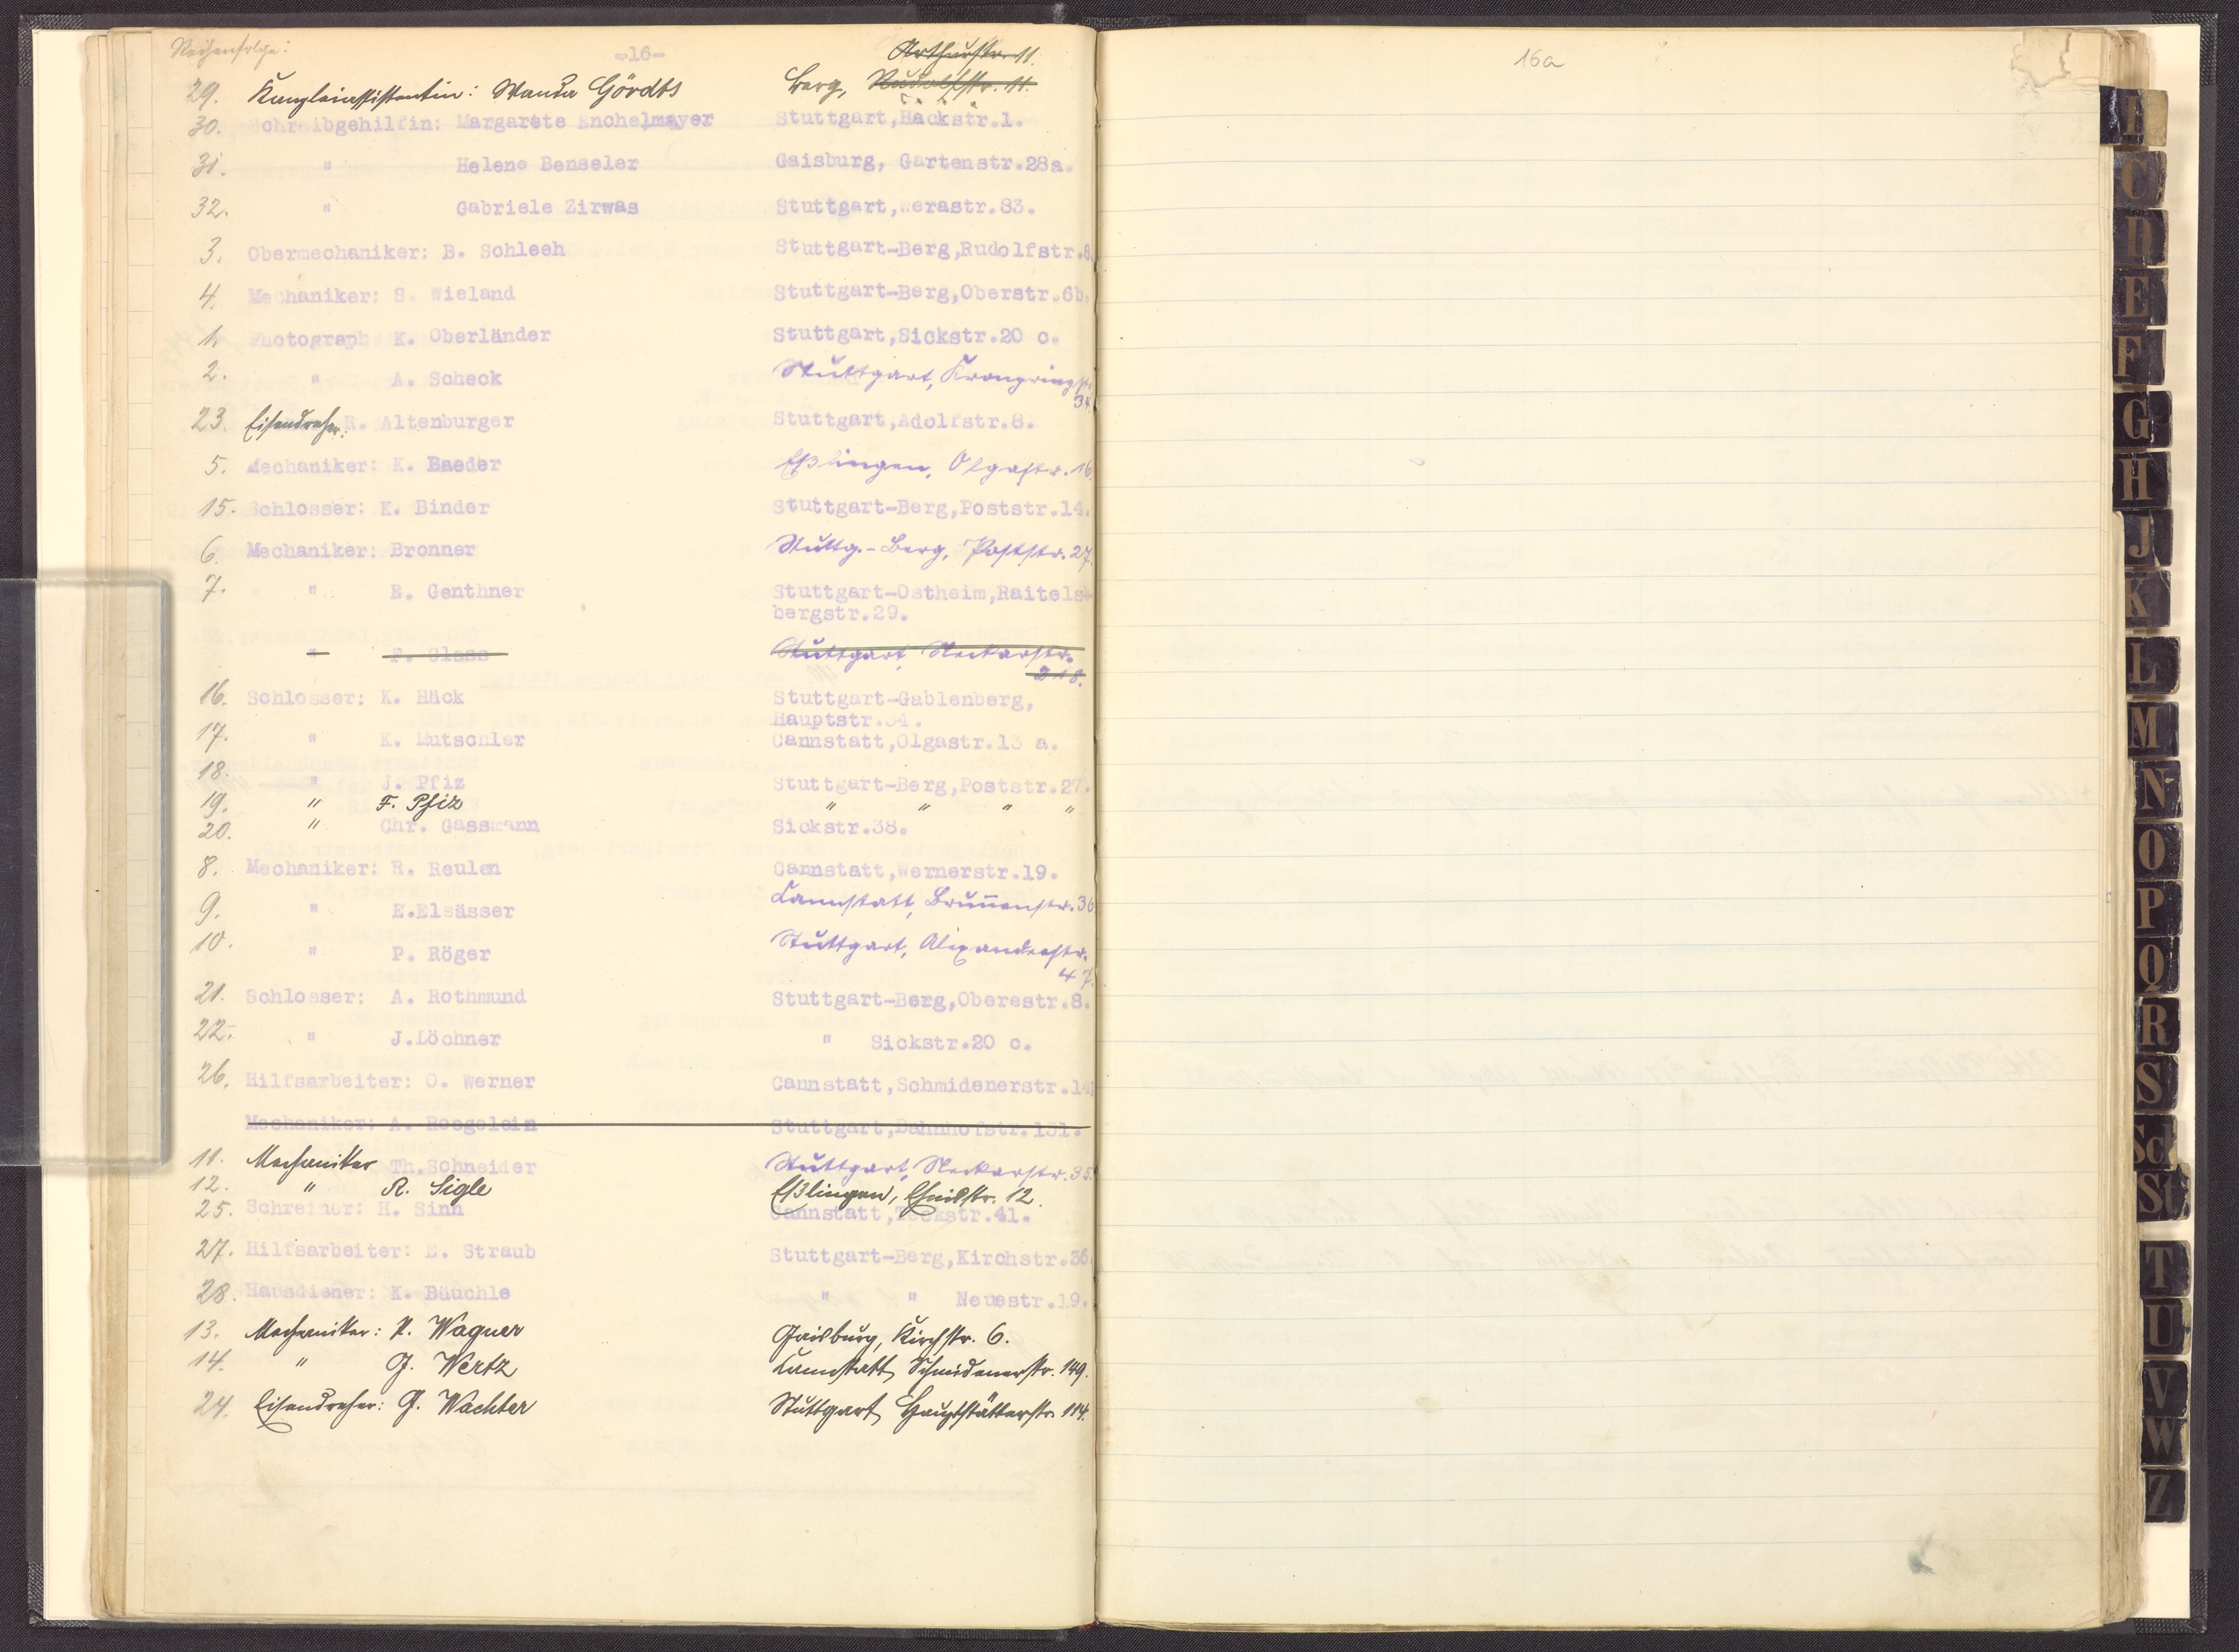 Reihenfolge:
-16-
Arthurstr. 11.
29. Kanzleiassistentin: Wanda Gördts Berg, Rudolfstr. 11.
30. Schreibgehilfin: Margarete Enchelmayer Stuttgart, Hackstr.1.
31. " Helene Benseler Gaisburg, Gartenstr.28a.
32. " Gabriele Zirwas Stuttgart, Werastr.83.
3. Obermechaniker: B. Schleeh Stuttgart-Berg, Rudolfstr.8.
4. Mechaniker: S. Wieland Stuttgart-Berg, Oberstr.6b.
1. Photograph K. Oberländer Stuttgart, Sickstr.20 c.
2. " A. Scheck Stuttgart, Kronprinzstr.
34.
23. Eisendreher: R. Altenburger Stuttgart, Adolfstr.8.
5. Mechaniker: K. Baeder Eßlingen, Olgastr. 16.
15. Schlosser: K. Binder Stuttgart-Berg, Poststr.14.
6. Mechaniker: Bronner Stuttg.-Berg, Poststr. 27.
7. " E. Genthner Stuttgart-Ostheim, Raitels-
bergstr.29.
" F. Glass Stuttgart, Neckarstr.
218.
16. Schlosser: K. Häck Stuttgart-Gablenberg,
Hauptstr.34.
17. " K. Mutschler Cannstatt, Olgastr.13 a.
18. " J. Pfiz Stuttgart-Berg, Poststr.27.
19. " F. Pfiz " " " "
20. " Chr. Gassmann Sickstr.38.
8. Mechaniker: R. Reulen Cannstatt, Wernerstr.19.
9. " E.Elsässer Cannstatt, Brunnenstr. 36
10. " P. Röger Stuttgart, Alexanderstr.
47.
21. Schlosser: A. Rothmund Stuttgart-Berg, Oberestr.8.
22. " J.Löchner " Sickstr.20 c.
26. Hilfsarbeiter: O. Werner Cannstatt, Schmidenerstr.
Mechaniker: A. Roegelein Stuttgart, Bahnhofstr.131.
11. Mechaniker Th.Schneider Stuttgart, Neckarstr.
12. " R. Sigle Eßlingen, Ehnisstr. 12.
25. Schreiner: H. Sinn Cannstatt, Teckstr.41.
27. Hilfsarbeiter: E. Straub Stuttgart-Berg, Kirchstr.36.
28. Hausdiener: K. Bäuchle " " Neuestr.19.
13. Mechaniker: K. Wagner Gaisburg, Kirchstr. 6.
14. " G. Wertz Cannstatt, Schmidenerstr. 149.
24. Eisendreher: G. Wachter Stuttgart, Hauptstätterstr. 114.
16a
B
C
D
E
F
G
H
J
K
L
M
N
O
P
Q
R
S
Sch
St
T
U
V
W
Z